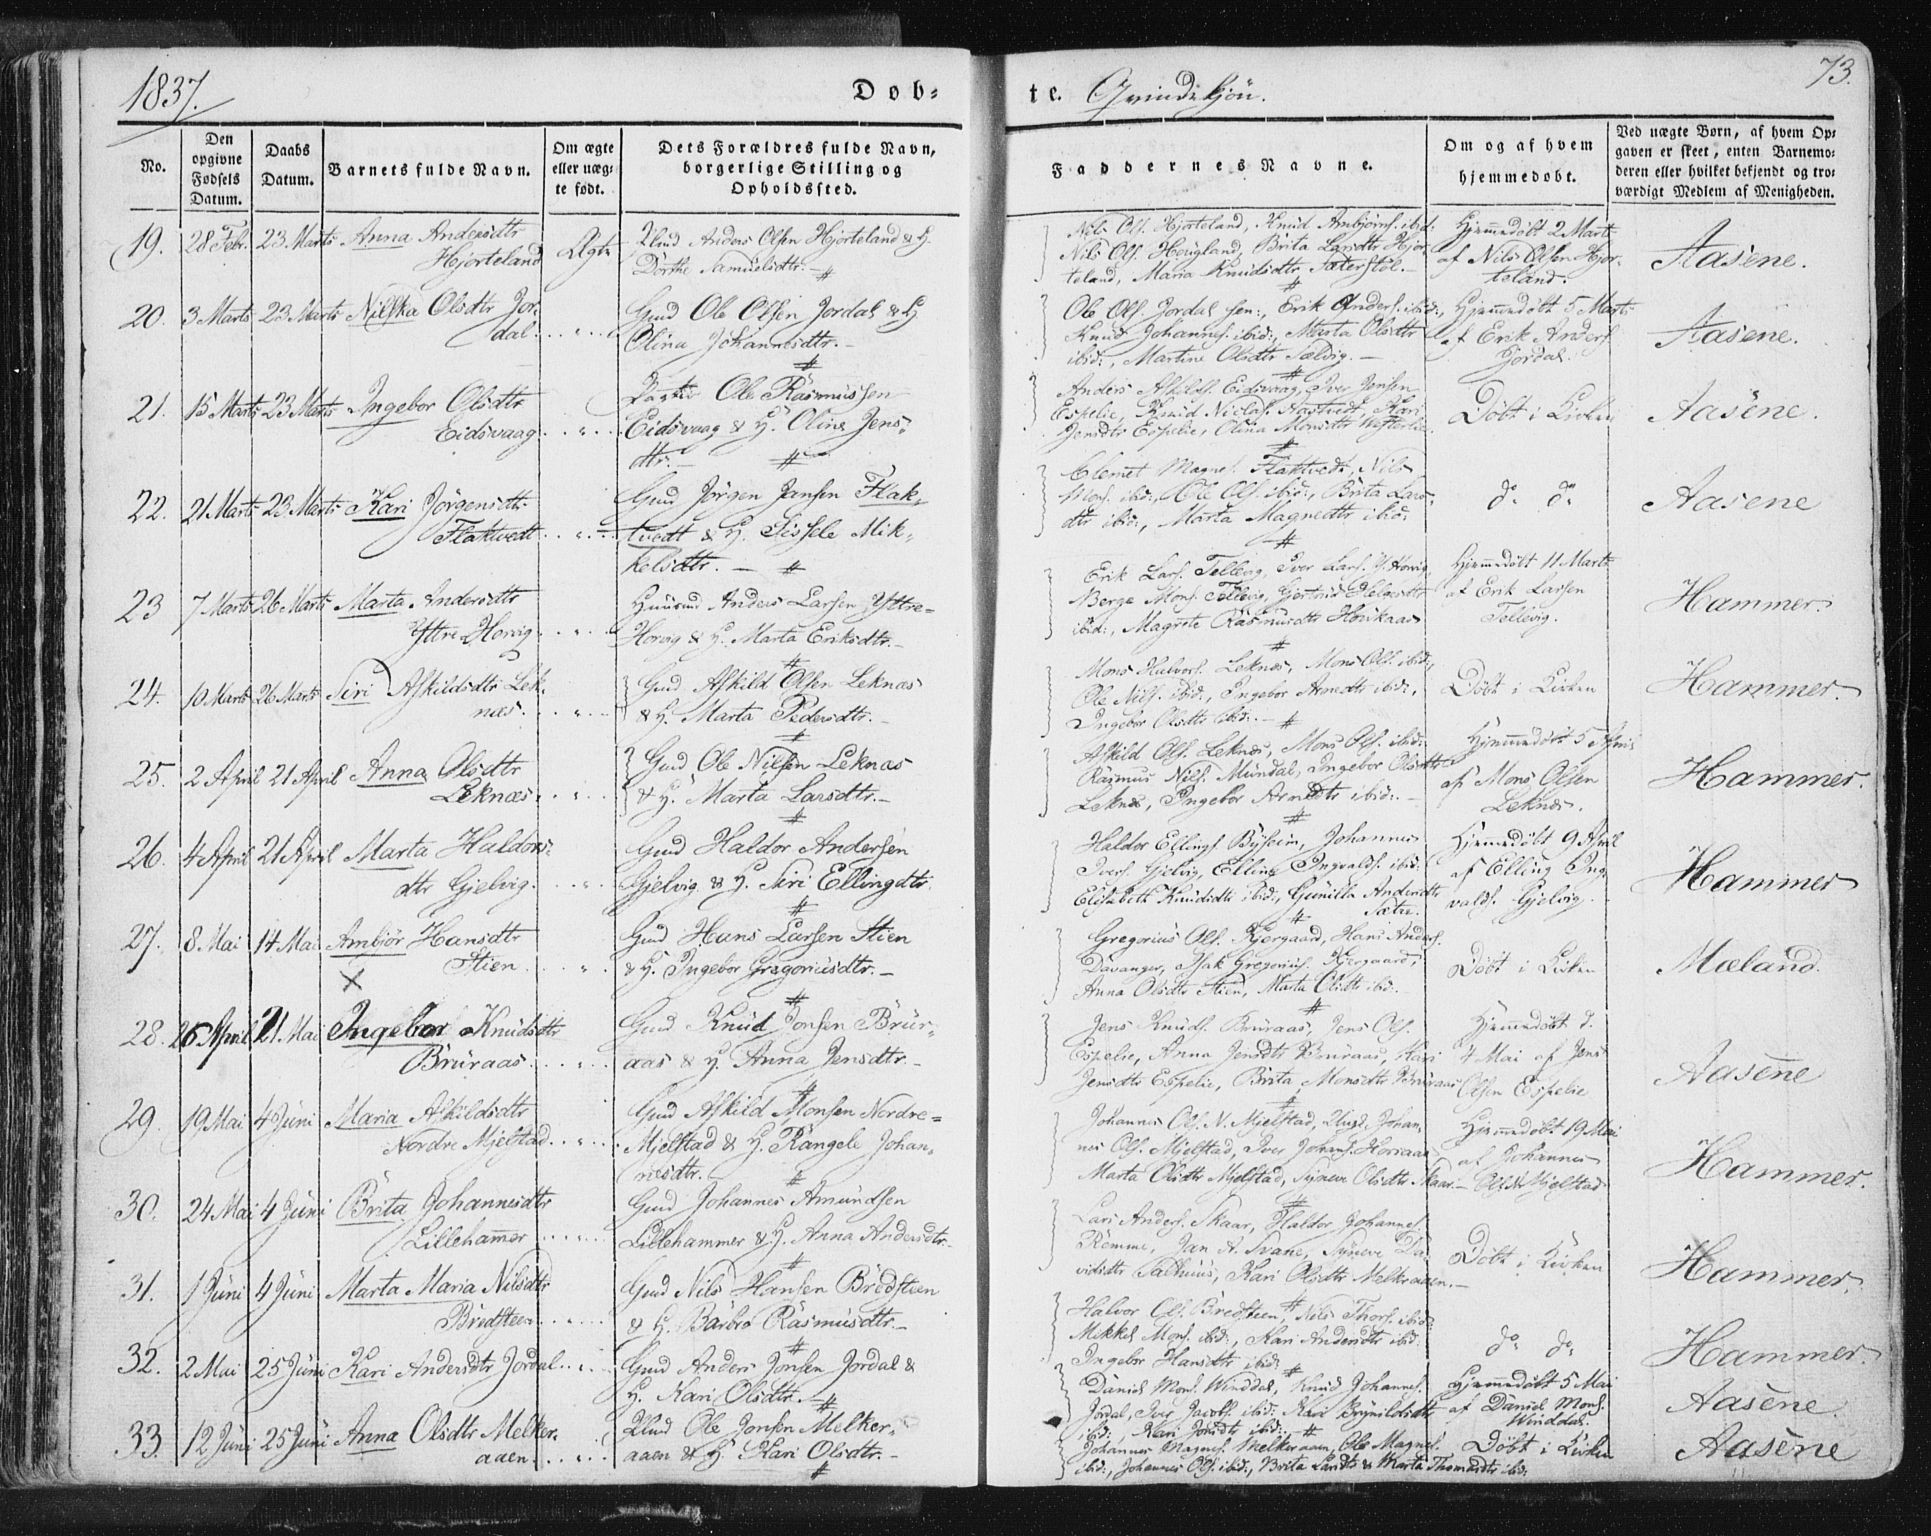 1837.
Dob-
te. Qvindekjön.
73.
No.
Den opgivne Fødsels Datum.
Daabs Datum.
Barnets fulde Navn.
Om ægte eller uægte født.
Dets Forældres fulde Navn, borgerlige Stilling og Opholdssted.
Faddernes Navne.
Om og af hvem hjemmedøbt.
Ved uægte Børn, af hvem Opgaven er skeet, enten Barnemoderen eller hvilket bekjendt og troværdigt Medlem af Menigheden.
19. 28 Febr. 23 Marts Anna Andersdtr Hjorteland Ægte
Anders Olsen Hjorteland & H. Dorthe Samuelsdtr.
Nils Ols. Hjorteland, Knud Arnbjörns. ibid:
Nils Ols. Hougland, Brita Larsdtr Hjorteland, Maria Knudsdtr Sæterstøl.
Hjemmedöbt 2 Marts af Nils Olsen Hjorteland.
Aasene.
20. 3 Marts 23 Marts Nilska Olsdtr Jordal
Gmd Ole Olsen Jordal & H. Olina Johannesdtr.
Ole Ols. Jordal sen:, Erik Anders. ibid:,
Knud Johannes. ibid:, Marta Olsdtr ibid:, Martine Olsdtr Sældvig.
Hjemmedöbt 5 Marts af Erik Anders. Jordal.
Aasene.
21. 15 Marts 23 Marts Ingebor Olsdtr Eidsvaag
Ole Rasmussen Eidsvaag & H. Oline Jensdtr.
Anders Askilds. Eidsvaag, Iver Jensen
Espelie, Knud Niclas. Aastvedt, Kari
Jensdtr Espelie, Olina Monsdtr
Döbt i Kirken
Aasene.
22. 21 Marts 23 Marts Kari Jörgensdtr Flaktvedt
Gmd Jörgen Jansen Flaktvedt & H. Sissele Mikkelsdtr.
Clemet Magnes. Flaktvedt, Nils
Mons. ibid:, Ole Ols. ibid:, Brita Larsdtr ibid:, Marta Magnedtr ibid:
do do
Aasene
23 7 Marts 26 Marts Marta Andersdtr Yttre Horvig
Huusmd Anders Larsen Yttre-Horvig & H. Marta Eriksdtr.
Erik Lars. Tellevig, Iver Lars. Y. Horvig,
Berge Mons. Tellevig, Gjertrud
ibid:, Magrete Rasmusdtr Hovikaas
Hjemmedöbt 11 Marts af Erik Larsen Tellevig.
Hammer.
24. 10 Marts 26 Marts Siri Askildsdtr Leknæs.
Gmd Askild Olsen Leknæs & H. Marta Pedersdtr.
Mons Halvors. Leknæs, Mons Ols. ibid:,
Ole Nils. ibid:, Ingebor Arnedtr ibid:,
Ingebor Olsdtr ibid:
Döbt i Kirken
Hammer.
25. 2 April 21 April Anna Olsdtr Leknæs.
Gmd Ole Nilsen Leknæs & H. Marta Larsdtr.
Askild Ols. Leknæs, Mons Ols. ibid:
Rasmus Nils. Mundal, Ingebor Olsdtr
Leknæs, Ingebor Arnedtr ibid:
Hjemmedöbt 5 April af Mons Olsen Leknæs.
Hammer.
26. 4 April 21 April Marta Haldorsdtr Gjelvig.
Gmd Haldor Andersen Gjelvig & H. Siri Ellingdtr.
Haldor Ellings. Bysheim, Johannes
Ivers. Gjelvig, Elling Ingvalds. ibid.
Elisabeth Knudsdtr ibid:, Gunilla Andersdtr Sætre.
Hjemmedöbt 9 April af Elling Ingvalds. Gjelvig.
Hammer
27. 8 Mai 14 Mai Ambjör Hansdtr Stien
X
Gmd Hans Larsen Stien & H. Ingebor Gregoriusdtr.
Gregorius Ols. Kjergaard, Hans Anders.
Davanger, Isak Gregorius. Kjergaard,
Anna Olsdtr Stien, Marta Olsdtr ibid.
Döbt i Kirken
Mæland.
28. 26 April 21 Mai Ingebor Knudsdtr Bruraas
Gmd Knud Jonsen Bruraas & H. Anna Jensdtr.
Jens Knuds. Bruraas, Jens Ols.
Espelie, Anna Jensdtr Bruraas, Kari
Jensdtr Espelie, Brita Monsdtr Bruraas
Hjemmedöbt d. 4 Mai af Jens Olsen Espelie
Aasene
29. 19 Mai 4 Juni Maria Askildsdtr Nordre Mjelstad
Gmd Askild Monsen Nordre-Mjelstad & H. Rangele Johannesdtr.
Johannes Ols. N. Mjelstad, Johannes Ols. Mjelstad, Iver Johans. Horsaas
Marta Olsdtr Mjelstad, Synneve Olsdtr Skaar.
Hjemmedöbt 19 Mai af Johannes Ols. Mjelstad
Hammer.
30. 24 Mai 4 Juni Brita Johannesdtr Lillehamer
Gmd Johannes Amundsen Lillehammer & H. Anna Andersdtr.
Lars Anders. Skaar, Haldor Johannes.
Romme, Jan A. Svane, Synneve Davidsdtr Salhuus, Kari Olsdtr Melkeraaen.
Döbt i Kirken
Hammer.
31. 1 Juni 4 Juni Marta Maria Nilsdtr Bredsteen
Gmd Nils Hansen Bredsteen & H. Barbro Rasmusdtr.
Halvor Ols. Bredsteen, Nils Thors. ibid:
Mikkel Mons. ibid:, Kari Andersdtr ibid.
Ingebor Hansdtr ibid:
do do
Hammer.
32. 2 Mai 25 Juni Kari Andersdtr Jordal
Gmd Anders Jonsen Jordal & H. Kari Olsdtr.
Daniel Mons. Winddal, Knud Johannes.
Jordal, Iver Jacobs. ibid: Kari Brynildsdtr
ibid:, Kari Jonsdtr ibid:
Hjemmedöbt 5 Mai af Daniel Mons. Winddal.
Aasene.
33. 12 Juni 25 Juni Anna Olsdtr Melkeraaen
Ole Jonsen Melkeraaen & H. Kari Olsdtr.
Johannes Magnes. Melkeraaen, Ole Magnes.
ibid:, Johannes Ols. ibid:, Brita Larsdtr & Marta Thomasdtr ibid:
Döbt i Kirken
Aasene